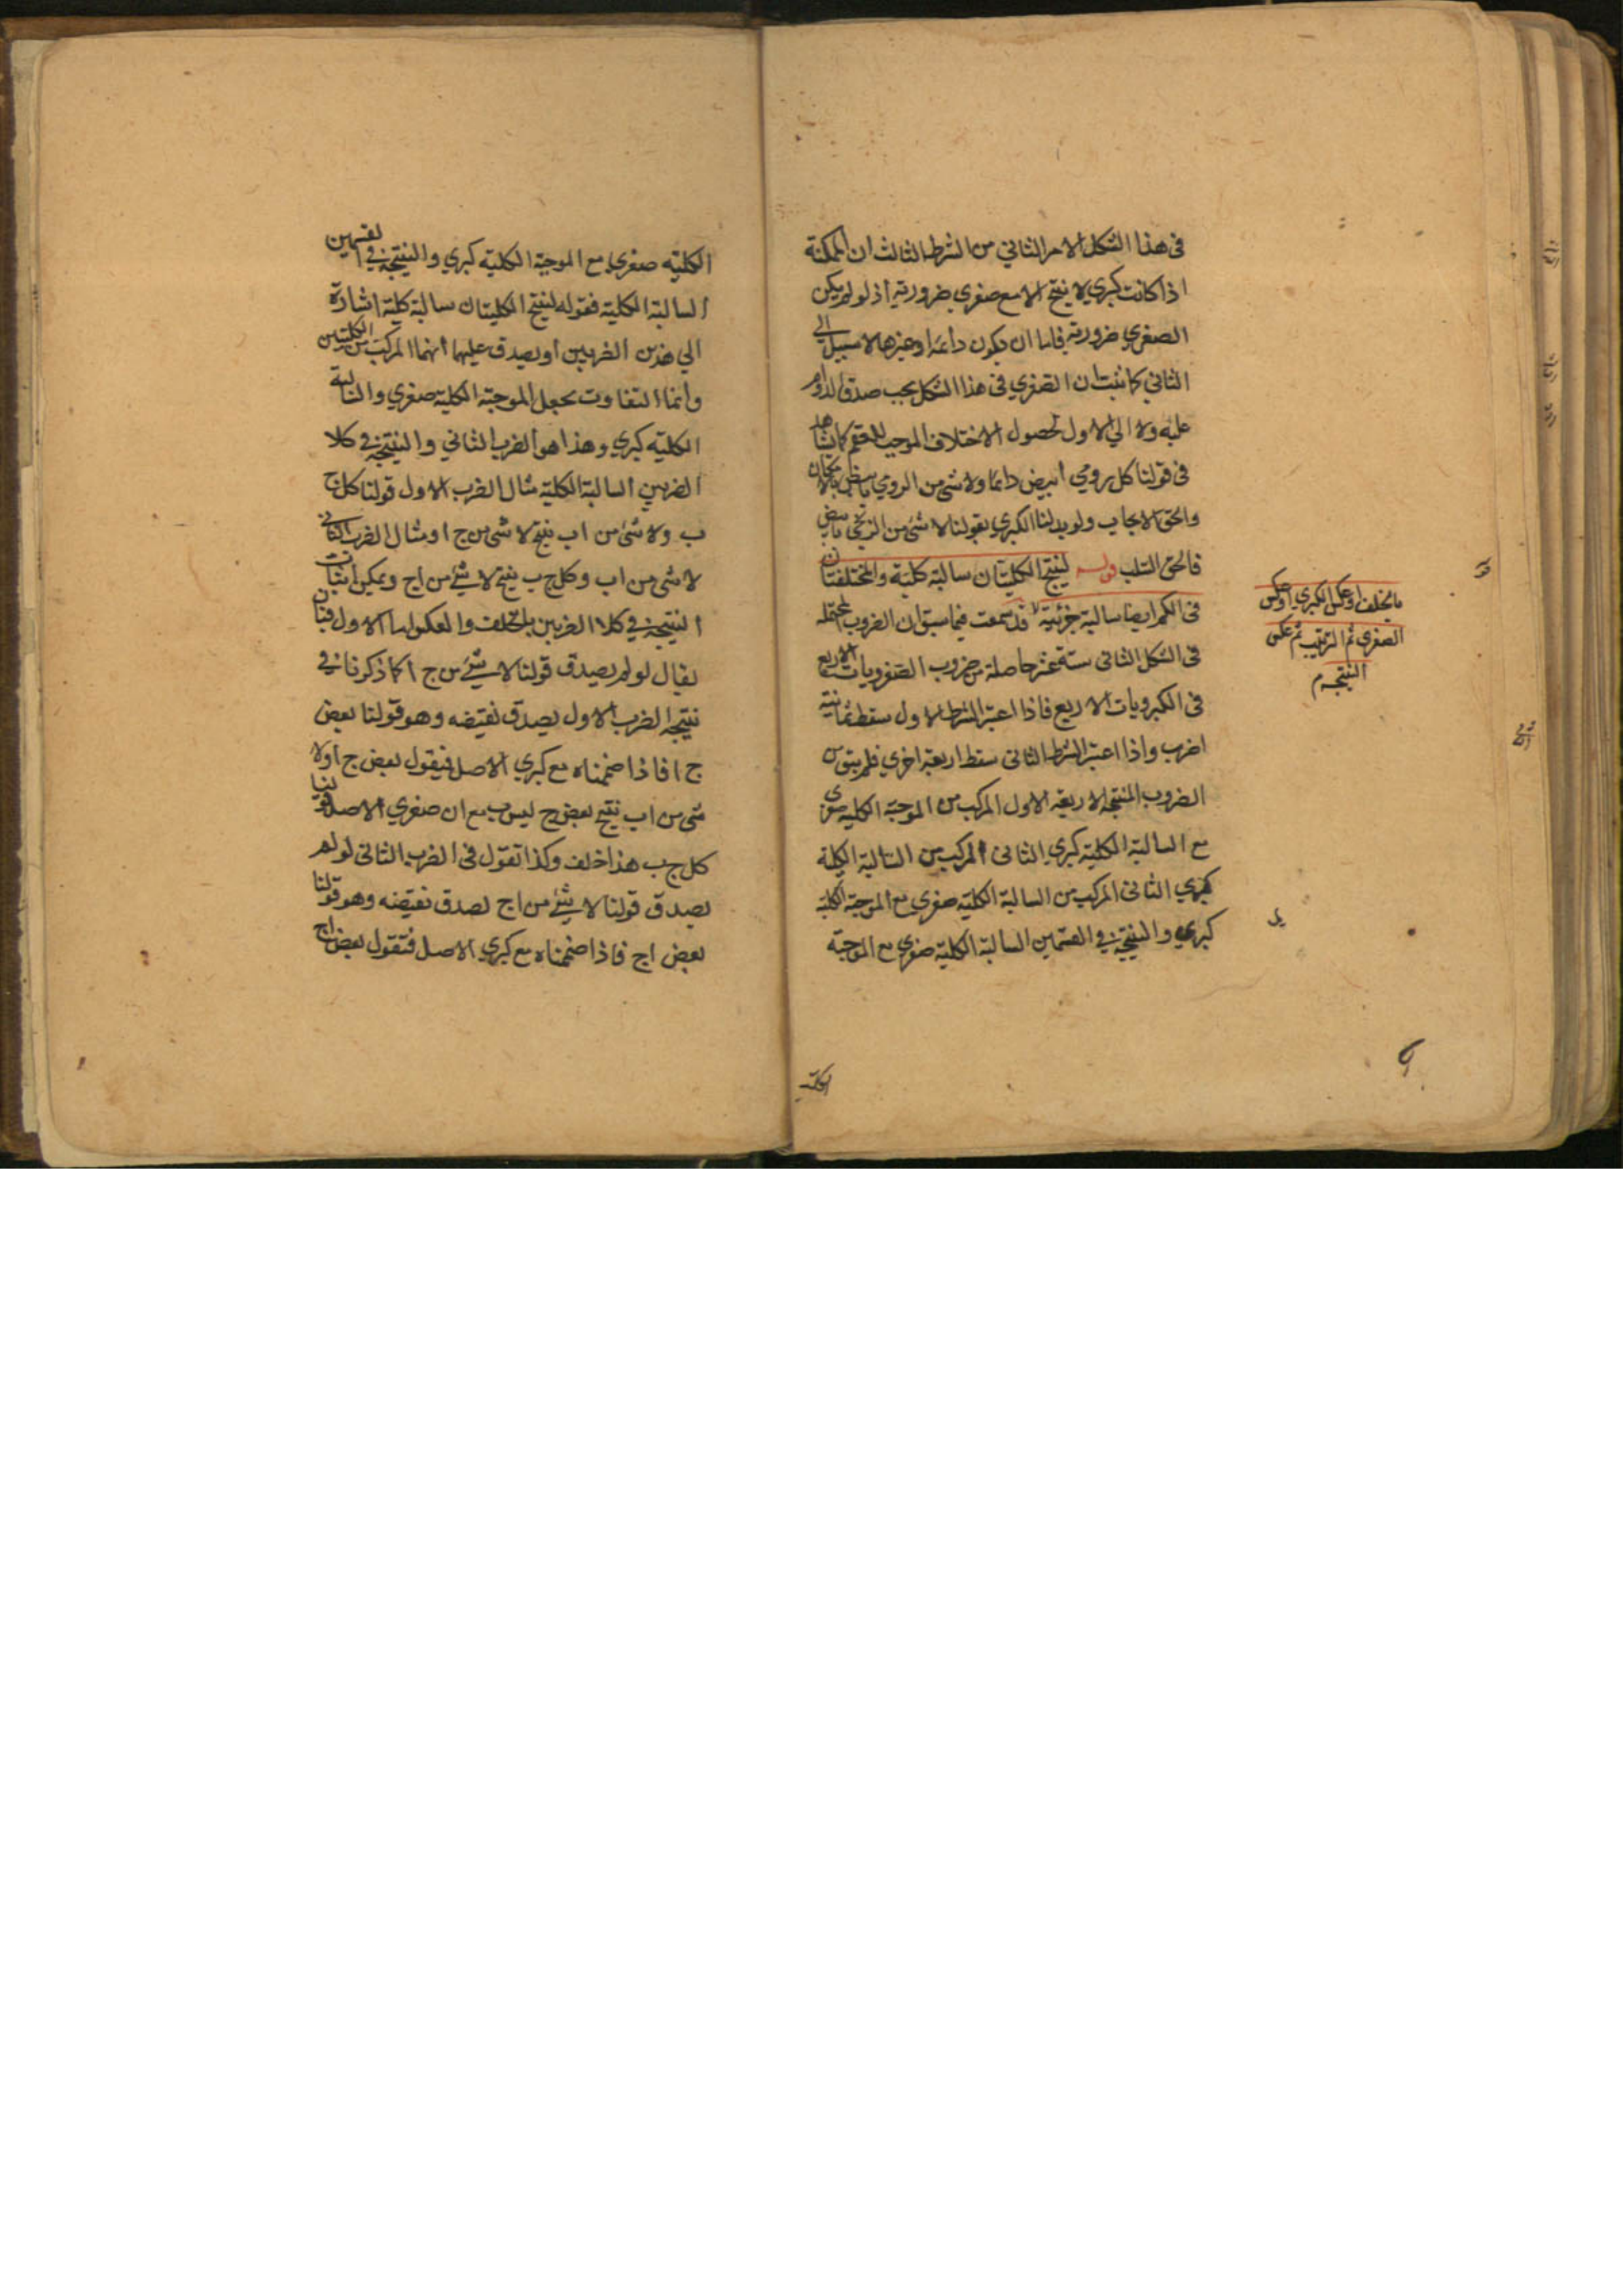 في هذا الشكل الامر الثاني من الشرط الثالث ان الممكنة
اذا كانت كبري لا ينتج الا مع صغري ضرورية اذ لو لم يكن
الصغري ضرورية فاما ان يكون دائمة او غيرها لا سبيل الي
الثاني كما ثبت ان الصغري في هذا الشكل يجب صدق الدوام
عليه ولا الي الاول لحصول الاختلاف الموجب للعقم كما يشاهد
في قولنا كل رومي ابيض دائما ولا شئ من الرومي بابيض بالامكان
والحق الايجاب ولو بدلنا الكبري بقولنا لا شئ من الزنجي بابيض
فالحق السلب قوله لينتج الكليتان سالبة كلية والمختلفتان
في الكم ايضا سالبة جزئية قد سمعت فيما سبق ان الضروب المحتملة
في الشكل الثاني ستة عشر حاصلة من ضروب الصغرويات الاربع
في الكبرويات الاربع فاذا اعتبر الشرط الاول سقط ثمانية
اضرب واذا اعتبر الشرط الثاني سقط اربعة اخري فلم يبق من
الضروب المنتجة الا اربعة الاول المركب من الموجبة الكلية صغري
مع السالبة الكلية كبري الثاني المركب من السالبة الكلية
كبري الثاني المركب من السالبة الكلية صغري مع الموجبة الكلية
كبري والنتيجة في القسمين السالبة الكلية صغري مع الموجبة
بالخلف او عكس الكبري او عكس
الصغري ثم الترتيب ثم عكس
النتيجة م
الكلية
الكلية صغري مع الموجبة الكلية كبري والنتيجة في القسمين
السالبة الكلية فقوله لينتج الكليتان سالبة كلية اشارة
الي هذين الضربين او يصدق عليهما انهما المركب من الكليتين
وانما التفاوت بجعل الموجبة الكلية صغري والسالبة
الكلية كبري وهذا هو الضرب الثاني والنتيجة في كلا
الضربين السالبة الكلية مثال الضرب الاول قولنا كل ج
ب ولا شئ من ا ب ينتج لا شئ من ج ا ومثال الضرب الثاني
لا شئ من ا ب وكل ج ب ينتج لا شئ من ا ج ويمكن اثبات
النتيجة في كلا الضربين بالخلف والعكس اما الاول فبان
يقال لو لم يصدق قولنا لا شئ من ج ا كما ذكرنا في
نتيجة الضرب الاول يصدق نقيضه وهو قولنا بعض
ج ا فاذا ضممناه مع كبري الاصل فيقول بعض ج ا ولا
شئ من ا ب ينتج بعض ج ليس ب مع ان صغري الاصل قولنا
كل ج ب هذا خلف وكذا تقول في الضرب الثاني لو لم
يصدق قولنا لا شئ من ا ج لصدق نقيضه وهو قولنا
بعض ا ج فاذا ضممناه مع كبري الاصل فتقول بعض ا ج